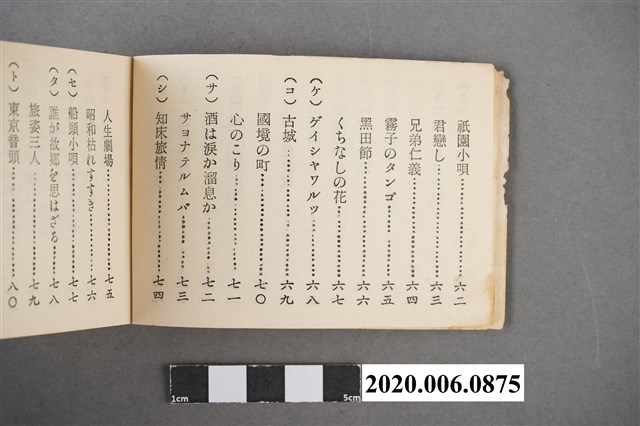 祇園小唄……六二
君戀し……六三
兄弟仁義……六四
霧子のタンゴ……六五
黑田節……六六
くちなしの花……六七
(ケ) ゲイシャワルツ……六八
(コ) 古城……六九
國境の町……七〇
心のこり……七一
(サ) 酒は淚か溜息か……七二
サヨナテルムバ……七三
(シ) 知床旅情……七四
人生劇場……七五
昭和枯れすすき……七六
(セ) 船頭小唄……七七
(タ) 誰が故鄕を思はざる……七八
旅姿三人……七九
(ト) 東京音頭……八〇
1cm
5cm
2020.006.0875